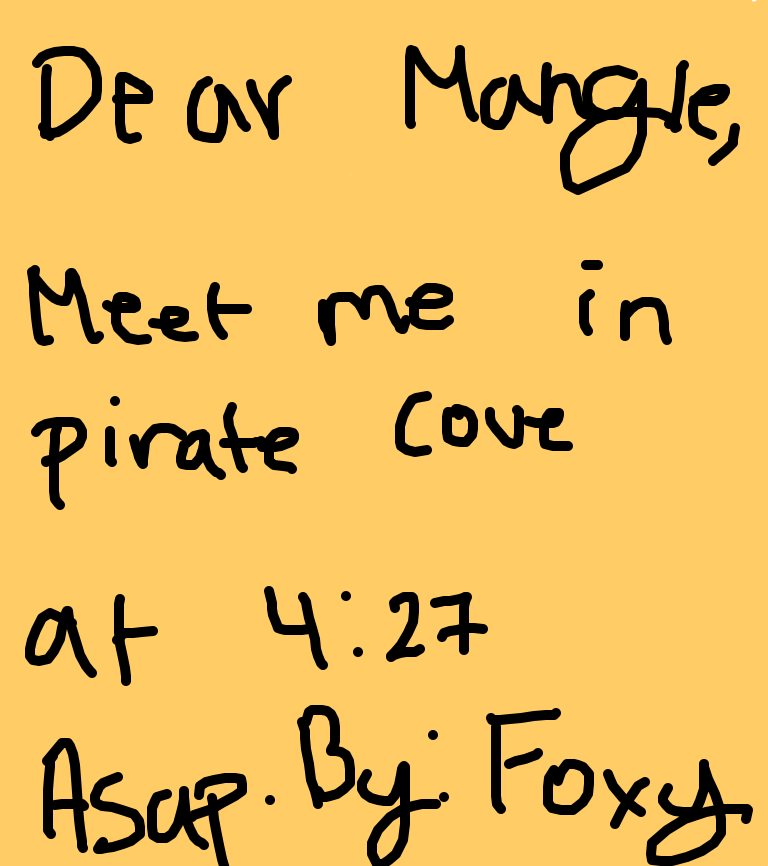 Dear Mangle,
Meet me in
pirate cove
at 4:27
Asap. By: Foxy